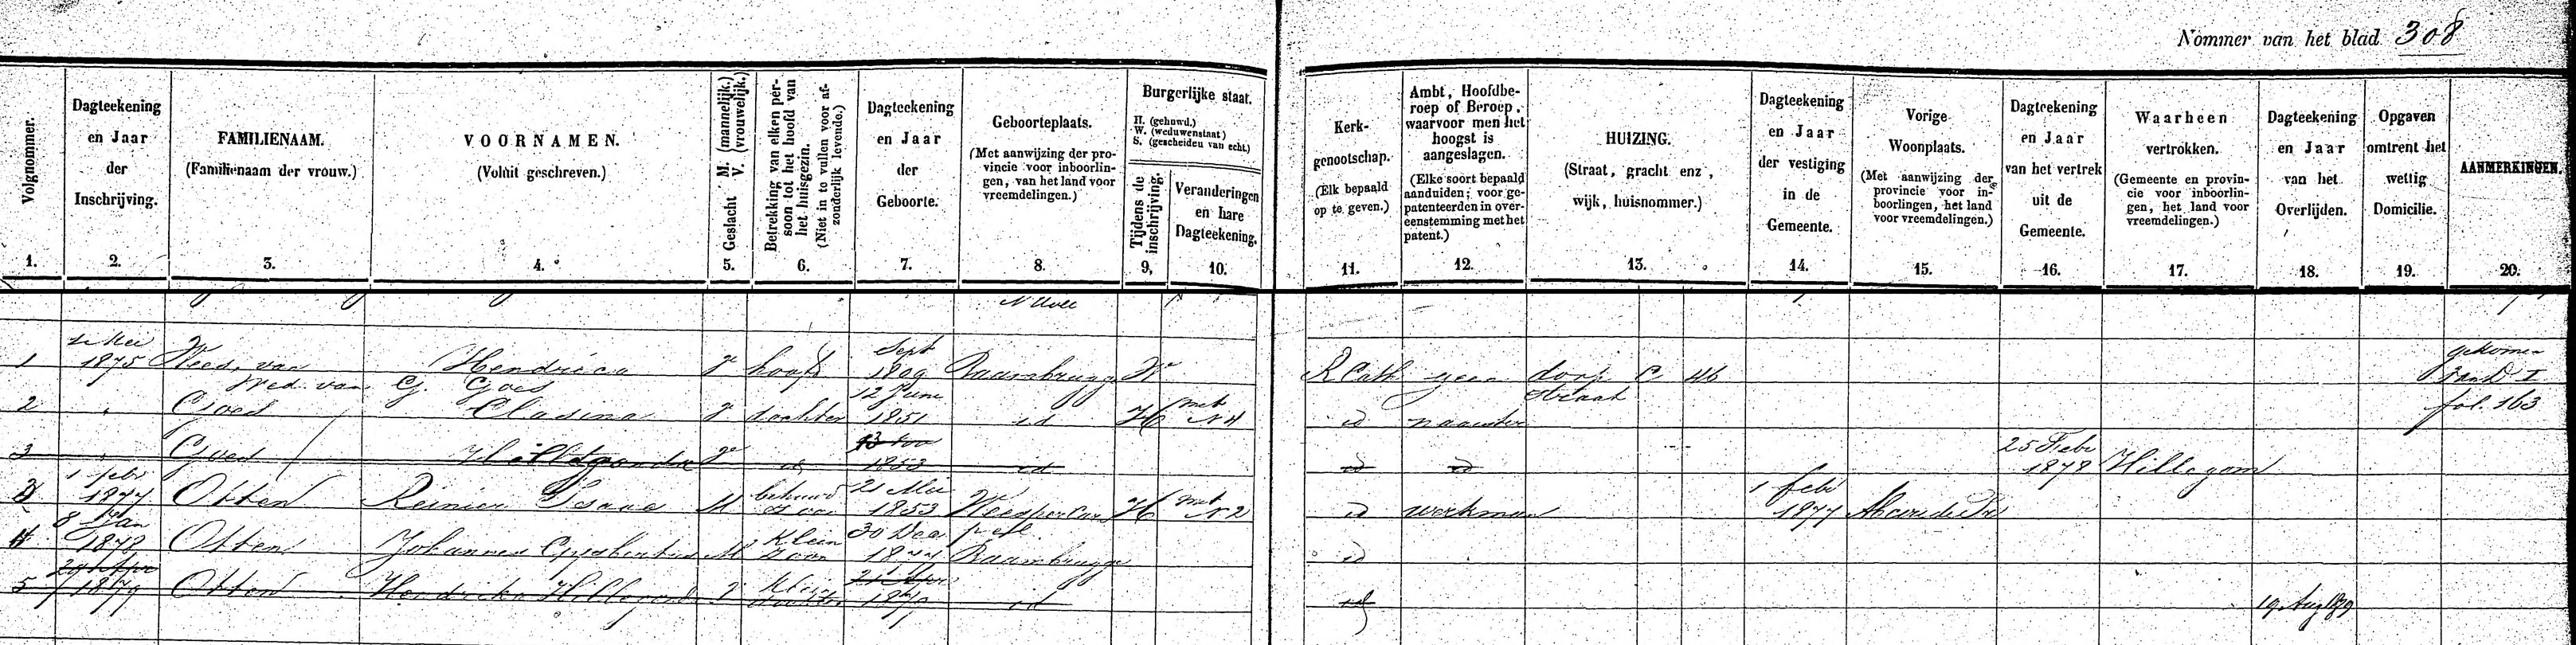 Nommer van het blad 308
Volgnommer.
1.
Dagteekening
en Jaar
der
Inschrijving.
2.
FAMILIENAAM.
(Familienaam der vrouw.)
3.
VOORNAMEN.
(Voluit geschreven.)
4.
Geslacht M. (mannelijk.)
V. (vrouwelijk.)
5.
Betrekking van elken per-
soon tot het hoofd van
het huisgezin.
(Niet in te vullen voor af-
zonderlijk levende.)
6.
Dagteekening
en Jaar
der
Geboorte.
7.
Geboorteplaats.
(Met aanwijzing der pro-
vincie voor inboorlin-
gen, van het land voor
vreemdelingen.)
8.
Burgerlijke staat.
H. (gehuwd.)
W. (weduwenstaat)
S. (gescheiden van echt.)
Tijdens de
inschrijving.
9,
Veranderingen
en hare
Dagteekening.
10.
Kerk-
genootschap.
(Elk bepaald
op te geven.)
11.
Ambt, Hoofdbe-
roep of Beroep,
waarvoor men het
hoogst is
aangeslagen.
(Elke soort bepaald
aanduiden; voor ge-
patenteerden in over-
eenstemming met het
patent.)
12.
HUIZING.
(Straat, gracht enz,
wijk, huisnommer.)
13.
Dagteekening
en Jaar
der vestiging
in de
Gemeente.
14.
Vorige
Woonplaats.
(Met aanwijzing der
provincie voor in-
boorlingen, het land
voor vreemdelingen.)
15.
Dagteekening
en Jaar
van het vertrek
uit de
Gemeente.
16.
Waarheen
vertrokken.
(Gemeente en provin-
cie voor inboorlin-
gen, het land voor
vreemdelingen.)
17.
Dagteekening
en Jaar
van het
Overlijden.
18.
Opgaven
omtrent het
wettig
Domicilie.
19.
AANMERKINGEN.
20.
1 Mei 1875 Wees, van Hendrica V hoofd Sept 1809 Baambrugge W R Cath geen dorp straat C 46 gekomen band I
Wed. van G. Goes fol. 163
2 Goed Cladina V dochter 12 Juni 1851 id H met N 4 id naaister
3 Goed Hillegonda V id 1853 id id id 25 Febr 1878 Hillegom
3 1 febr 1877 Otten Reinier Isaac M behuwd zoon 21 Mei 1853 Weespercarspel H met N 2 id werkman 1 febr 1877 Abcoude Pr
4 8 Jan 1878 Otten Johannes Gijsbertus M Klein zoon 30 Dec 1877 Baambrugge id
5 1879 Otten Hendrika Hillegonda V Klein dochter 1879 id id 19 Aug 1879